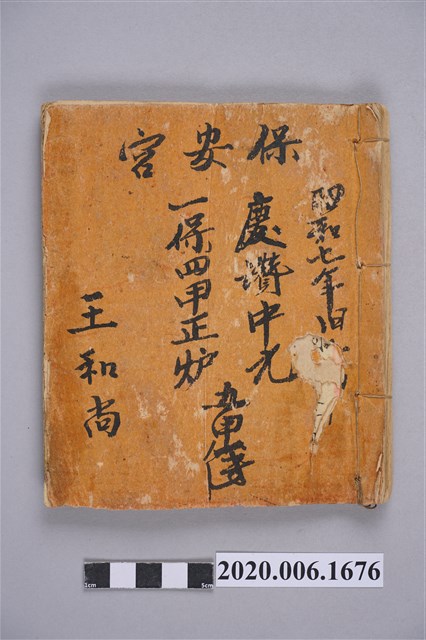 保安宮
昭和七年旧
慶讚中元
一保四甲正炉
九甲
王和尚
1cm
5cm
2020.006.1676